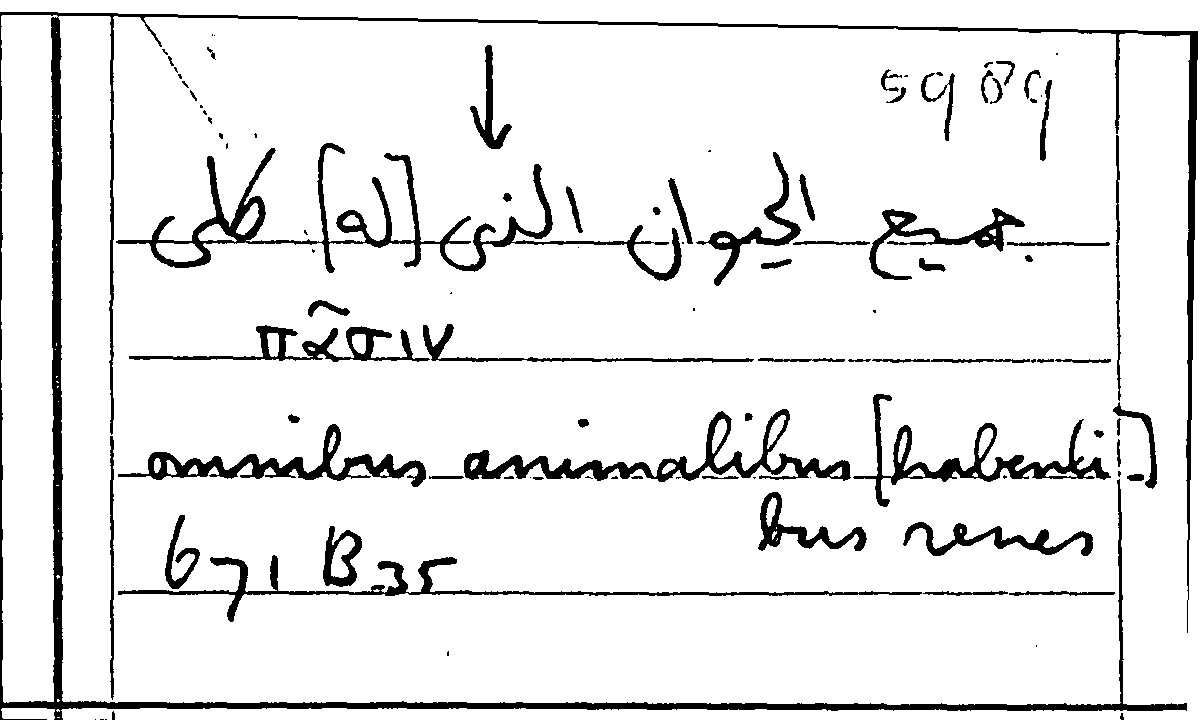 5989
جميع الحيوان الذى [له] كلى
πᾶσιν
omnibus animalibus [habenti-]
bus renes
671 B 35